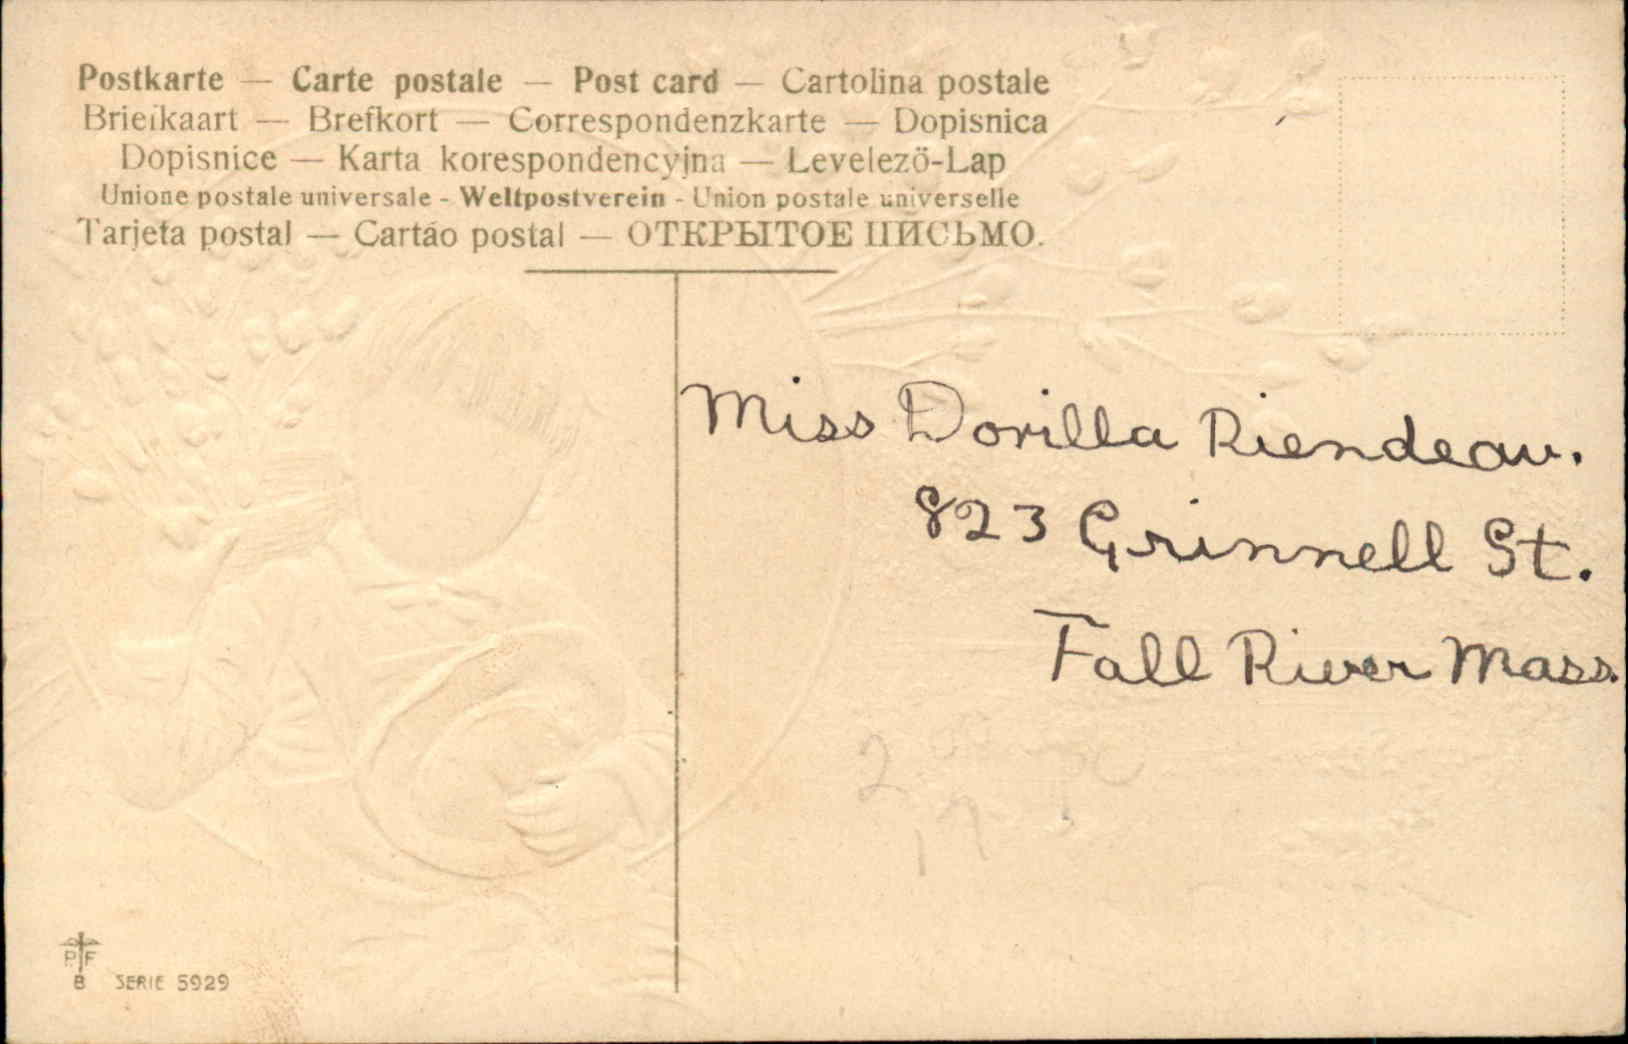 Postkarte — Carte postale — Post card — Cartolina postale
Briefkaart — Brefkort — Correspondenzkarte — Dopisnica
Dopisnice — Karta korespondencyjna — Levelező-Lap
Unione postale universale - Weltpostverein - Union postale universelle
Tarjeta postal — Cartáo postal — ОТКРЫТОЕ ПИСЬМО.
Miss Dorilla Riendeau.
823 Grinnell St.
Fall River Mass.
PF
B SERIE 5929